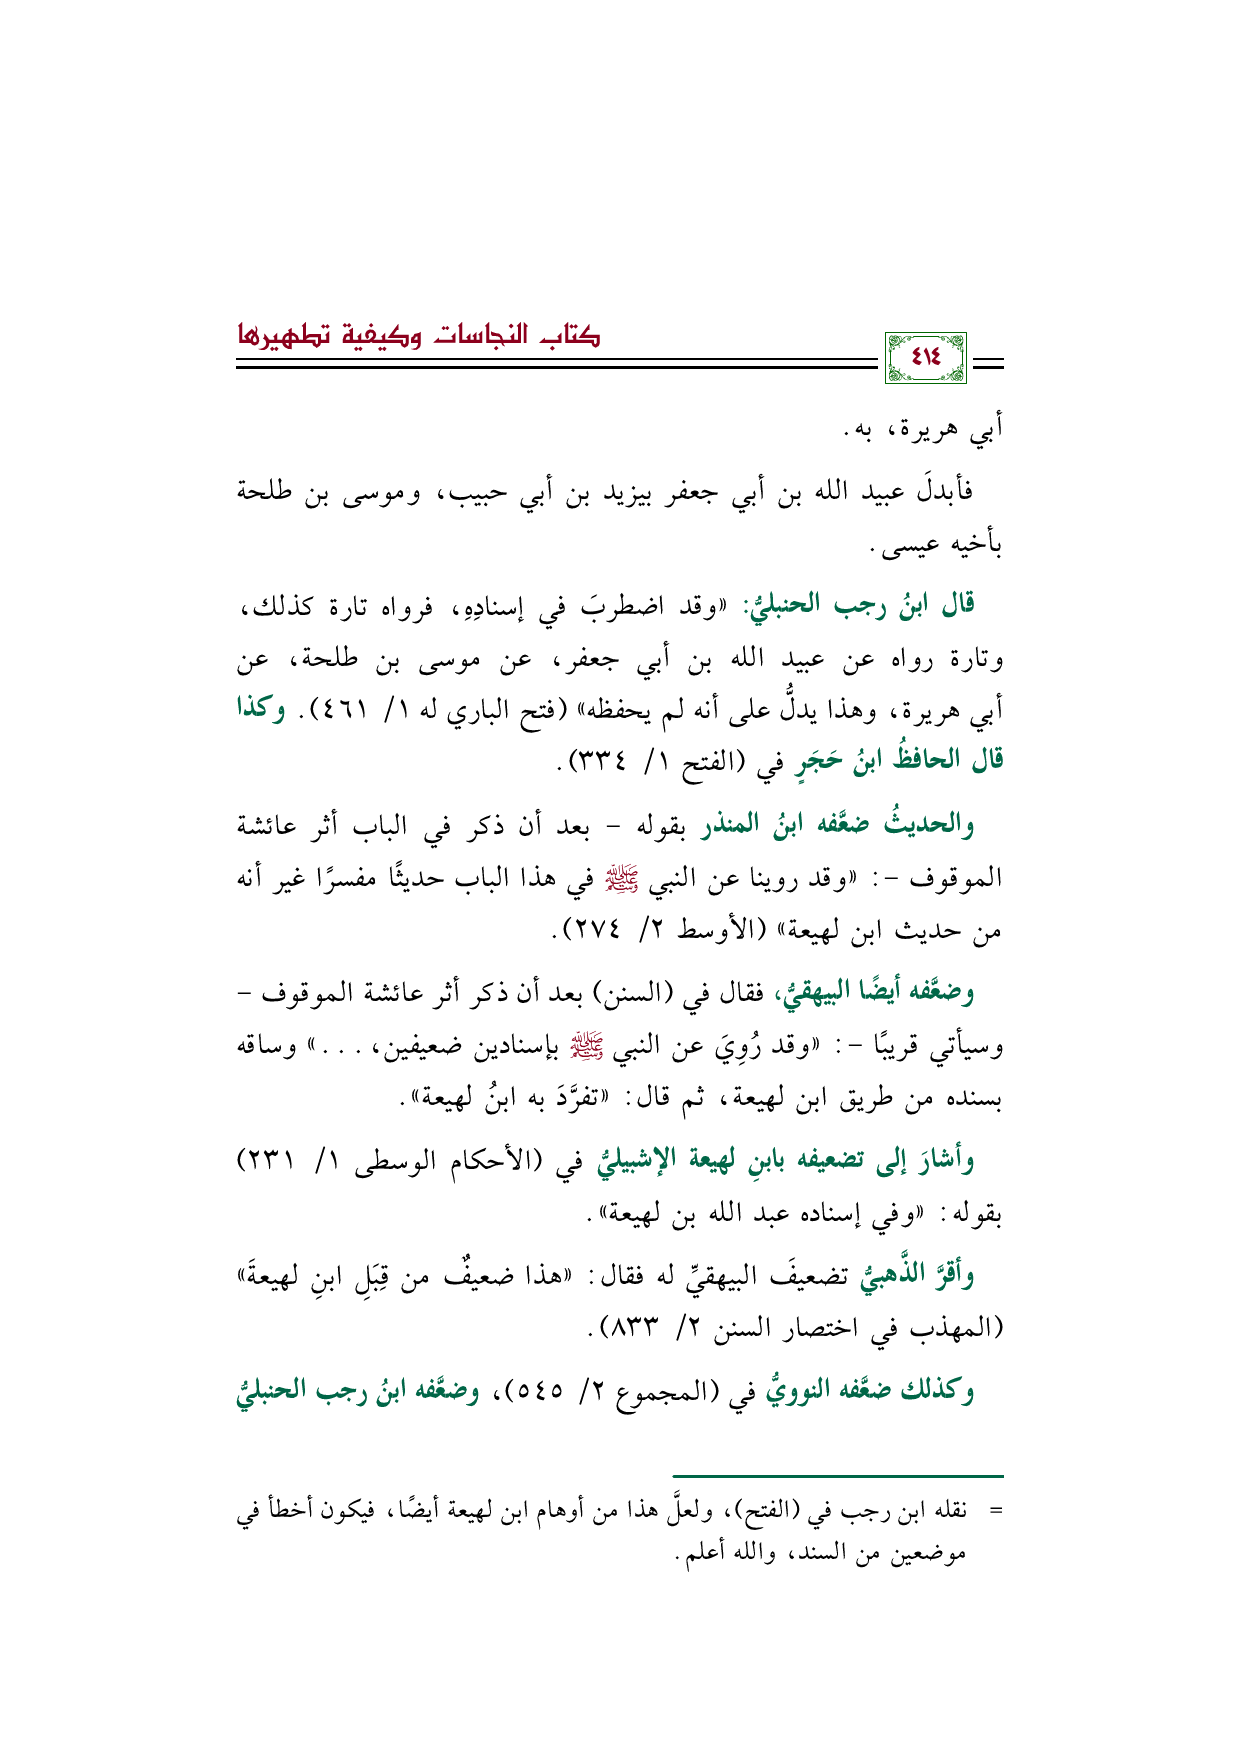 كتاب النجاسات وكيفية تطهيرها
٤١٤
أبي هريرة، به.
فأبدلَ عبيد الله بن أبي جعفر بيزيد بن أبي حبيب، وموسى بن طلحة
بأخيه عيسى.
قال ابنُ رجب الحنبليُّ: «وقد اضطربَ في إسنادِهِ، فرواه تارة كذلك،
وتارة رواه عن عبيد الله بن أبي جعفر، عن موسى بن طلحة، عن
أبي هريرة، وهذا يدلُّ على أنه لم يحفظه» (فتح الباري له ١/ ٤٦١). وكذا
قال الحافظُ ابنُ حَجَرٍ في (الفتح ١/ ٣٣٤).
والحديثُ ضعَّفه ابنُ المنذر بقوله – بعد أن ذكر في الباب أثر عائشة
الموقوف –: «وقد روينا عن النبي ﷺ في هذا الباب حديثًا مفسرًا غير أنه
من حديث ابن لهيعة» (الأوسط ٢/ ٢٧٤).
وضعَّفه أيضًا البيهقيُّ، فقال في (السنن) بعد أن ذكر أثر عائشة الموقوف –
وسيأتي قريبًا –: «وقد رُوِيَ عن النبي ﷺ بإسنادين ضعيفين، ...» وساقه
بسنده من طريق ابن لهيعة، ثم قال: «تفرَّدَ به ابنُ لهيعة».
وأشارَ إلى تضعيفه بابنِ لهيعة الإشبيليُّ في (الأحكام الوسطى ١/ ٢٣١)
بقوله: «وفي إسناده عبد الله بن لهيعة».
وأقرَّ الذَّهبيُّ تضعيفَ البيهقيِّ له فقال: «هذا ضعيفٌ من قِبَلِ ابنِ لهيعةَ»
(المهذب في اختصار السنن ٢/ ٨٣٣).
وكذلك ضعَّفه النوويُّ في (المجموع ٢/ ٥٤٥)، وضعَّفه ابنُ رجب الحنبليُّ
= نقله ابن رجب في (الفتح)، ولعلَّ هذا من أوهام ابن لهيعة أيضًا، فيكون أخطأ في
موضعين من السند، والله أعلم.